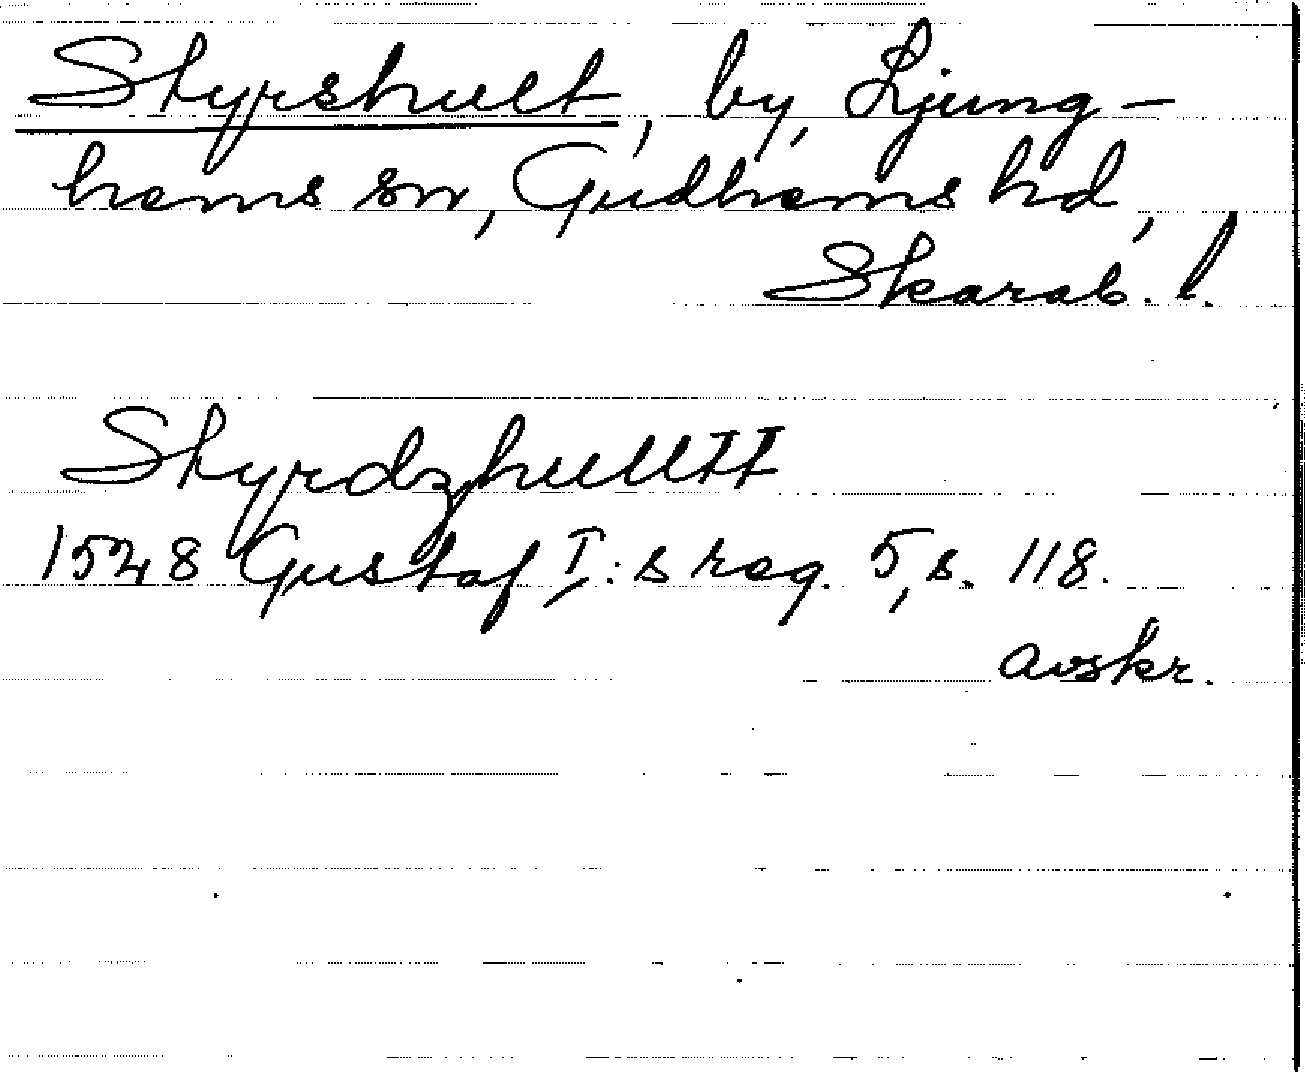 Styrshult, by, Ljung-
hems sn, Gudhems hd,
Skarab. l.
Styrdzhulltt
1548 Gustaf I:s reg. 5, s. 118.
avskr.